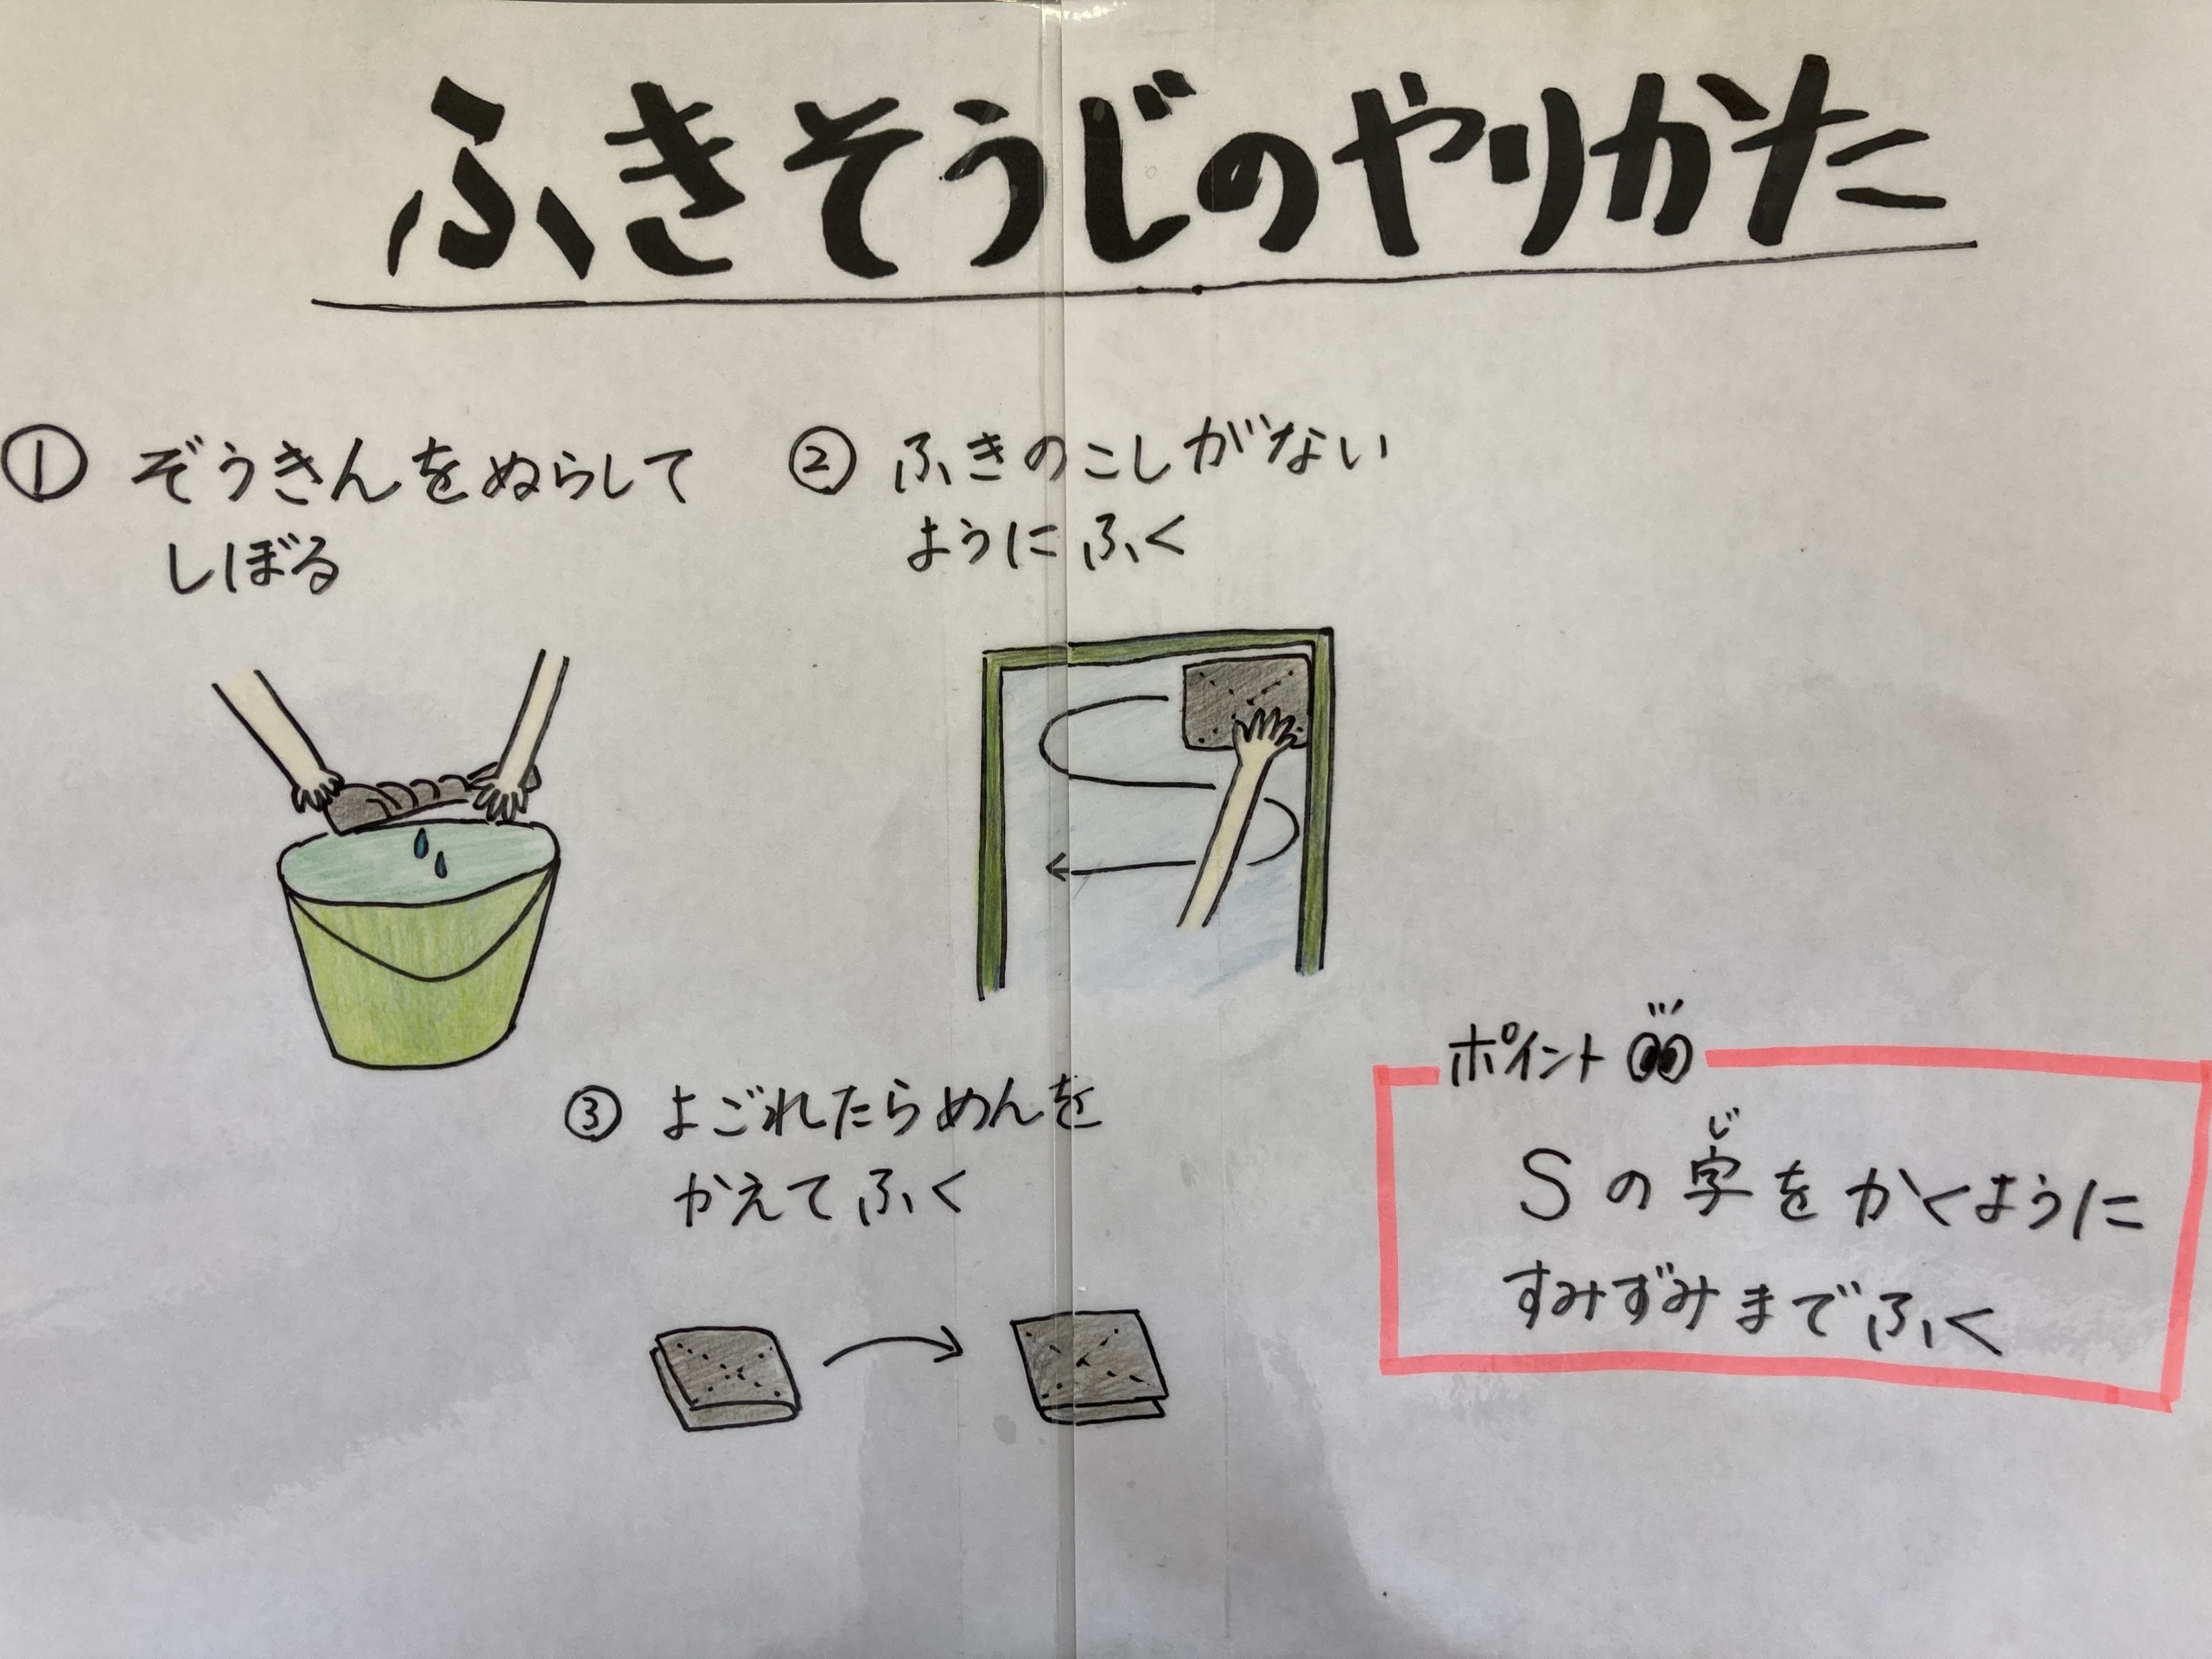 ふきそうじのやりかた
① ぞうきんをぬらして
しぼる
② ふきのこしがない
ようにふく
③ よごれたらめんを
かえてふく
ポイント
じ
Sの字をかくように
すみずみまでふく